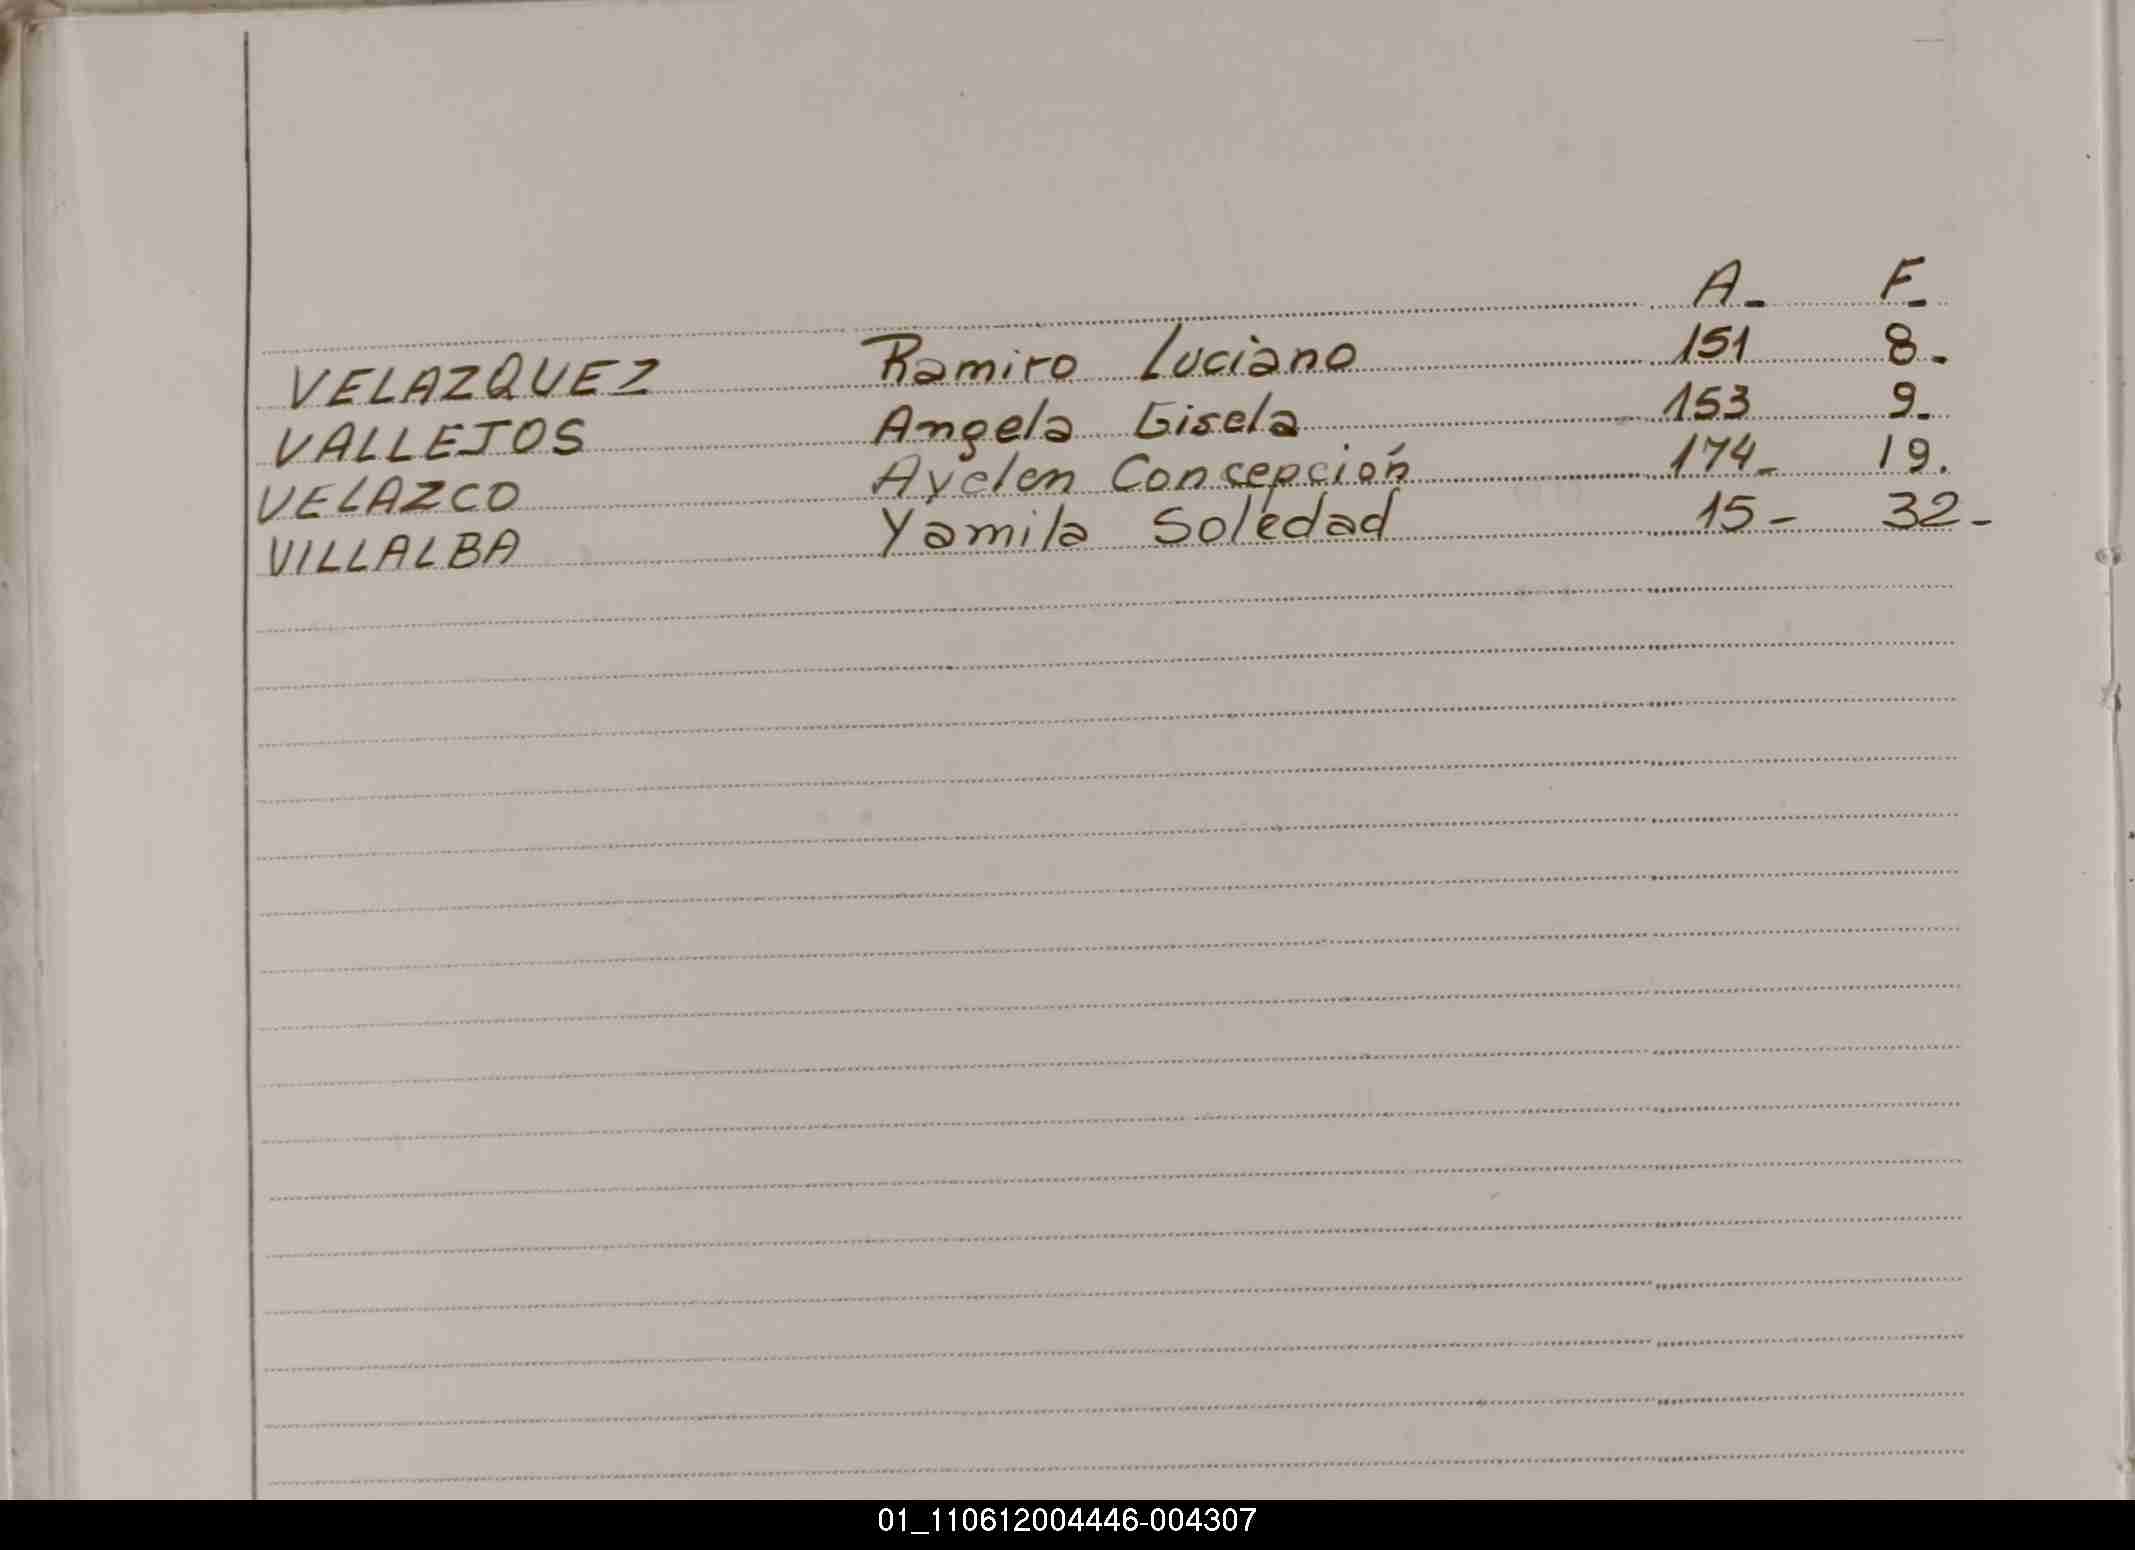 A- F-
VELAZQUEZ Ramiro Luciano 151 8-
VALLEJOS Angela Gisela 153 9-
VELAZCO Ayelen Concepción 174- 19.
VILLALBA Yamila Soledad 15- 32-
01_110612004446-004307